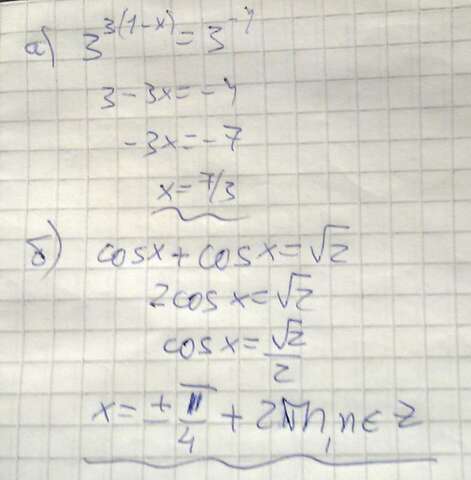 а) 3^{3(1-x)} = 3^{-4}
3 - 3x = -4
-3x = -7
x = 7/3
б) cosx + cosx = √2
2cosx = √2
cosx = √2/2
x = ± π/4 + 2πn, n ∈ Z